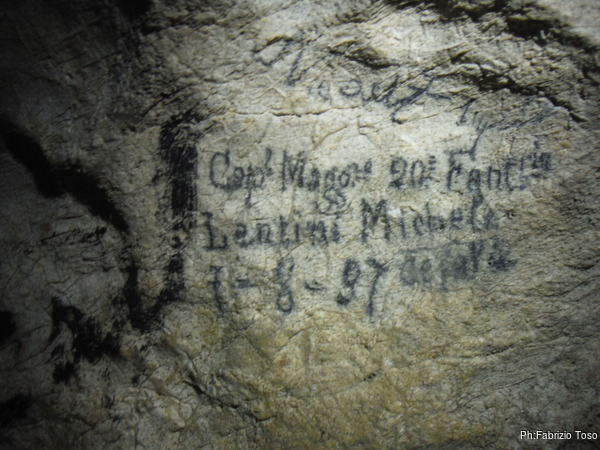 Capl Magore 20e Fantria
Lentini Michele
7-8-97
Ph:Fabrizio Toso